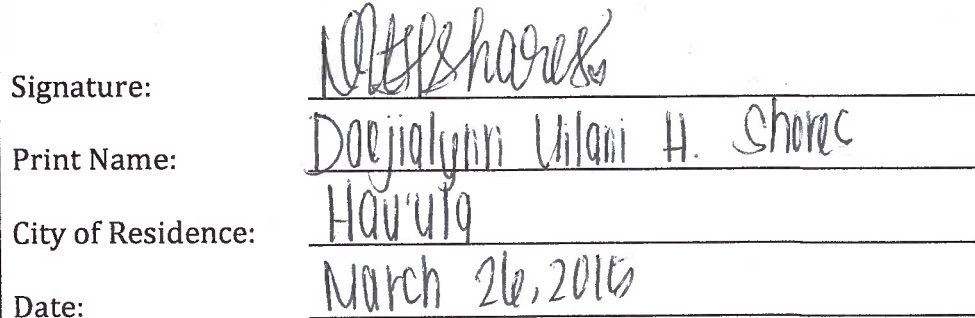 Signature: Shores
Print Name: Daejialynn Uilani H. Shores
City of Residence: Hau'ula
Date: March 26, 2016